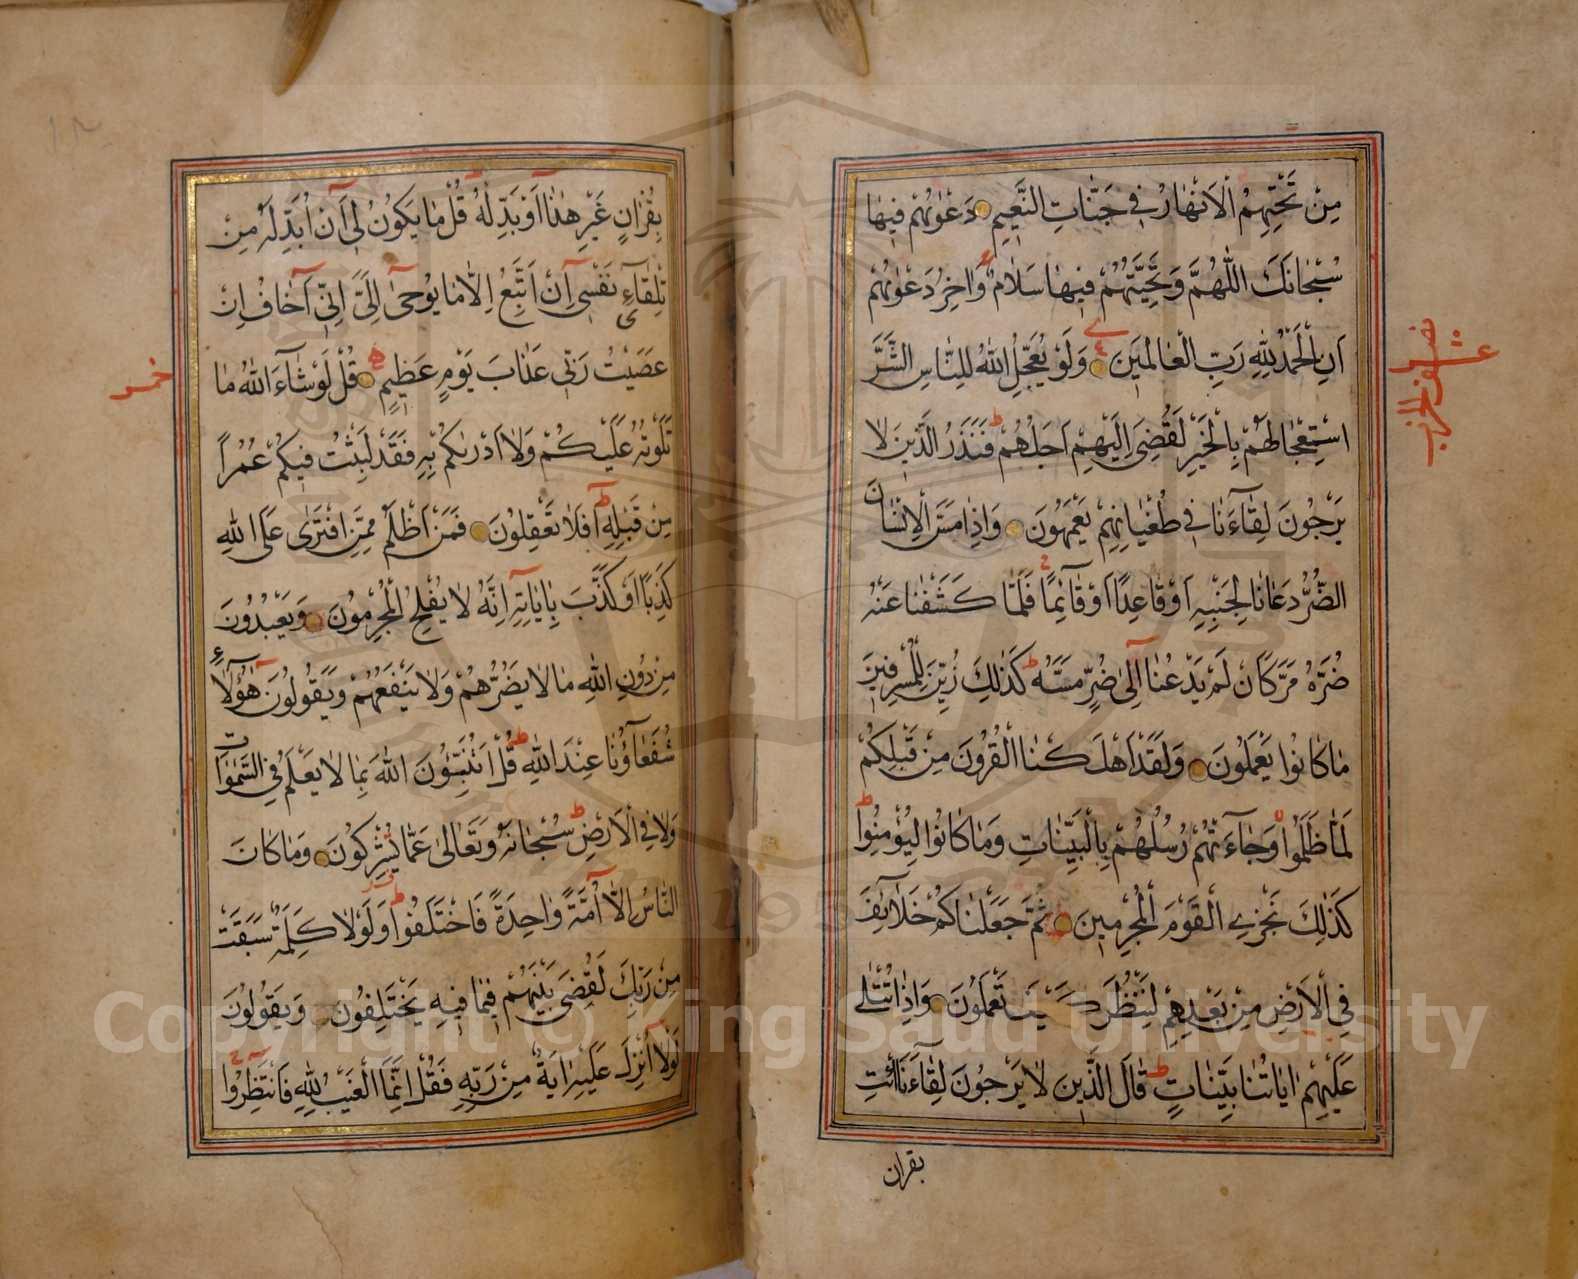 مِنْ تَحْتِهِمُ الْاَنْهَارُ فِي جَنَّاتِ النَّعِيمِ دَعْوٰيهُمْ فِيهَا
سُبْحَانَكَ اللّٰهُمَّ وَتَحِيَّتُهُمْ فِيهَا سَلَامٌ وَاٰخِرُ دَعْوٰيهُمْ
اَنِ الْحَمْدُ لِلّٰهِ رَبِّ الْعَالَمِينَ وَلَوْ يُعَجِّلُ اللّٰهُ لِلنَّاسِ الشَّرَّ
اسْتِعْجَالَهُمْ بِالْخَيْرِ لَقُضِىَ اِلَيْهِمْ اَجَلُهُمْ فَنَذَرُ الَّذِينَ لَا
يَرْجُونَ لِقَاءَنَا فِي طُغْيَانِهِمْ يَعْمَهُونَ وَاِذَا مَسَّ الْاِنْسَانَ
الضُّرُّ دَعَانَا لِجَنْبِهِ اَوْ قَاعِدًا اَوْ قَائِمًا فَلَمَّا كَشَفْنَا عَنْهُ
ضُرَّهُ مَرَّ كَاَنْ لَمْ يَدْعُنَا اِلٰى ضُرٍّ مَسَّهُ كَذٰلِكَ زُيِّنَ لِلْمُسْرِفِينَ
مَا كَانُوا يَعْمَلُونَ وَلَقَدْ اَهْلَكْنَا الْقُرُونَ مِنْ قَبْلِكُمْ
لَمَّا ظَلَمُوا وَجَاءَتْهُمْ رُسُلُهُمْ بِالْبَيِّنَاتِ وَمَا كَانُوا لِيُؤْمِنُوا
كَذٰلِكَ نَجْزِي الْقَوْمَ الْمُجْرِمِينَ ثُمَّ جَعَلْنَاكُمْ خَلَائِفَ
فِي الْاَرْضِ مِنْ بَعْدِهِمْ لِنَنْظُرَ كَيْفَ تَعْمَلُونَ وَاِذَا تُتْلٰى
عَلَيْهِمْ اٰيَاتُنَا بَيِّنَاتٍ قَالَ الَّذِينَ لَا يَرْجُونَ لِقَاءَنَا ائْتِ
بقران
نصف الحزب
بِقُرْاٰنٍ غَيْرِ هٰذَا اَوْ بَدِّلْهُ قُلْ مَا يَكُونُ لِي اَنْ اُبَدِّلَهُ مِنْ
تِلْقَاءِ نَفْسِي اِنْ اَتَّبِعُ اِلَّا مَا يُوحٰى اِلَيَّ اِنِّي اَخَافُ اِنْ
عَصَيْتُ رَبِّي عَذَابَ يَوْمٍ عَظِيمٍ قُلْ لَوْ شَاءَ اللّٰهُ مَا
تَلَوْتُهُ عَلَيْكُمْ وَلَا اَدْرٰيكُمْ بِهِ فَقَدْ لَبِثْتُ فِيكُمْ عُمُرًا
مِنْ قَبْلِهِ اَفَلَا تَعْقِلُونَ فَمَنْ اَظْلَمُ مِمَّنِ افْتَرٰى عَلَى اللّٰهِ
كَذِبًا اَوْ كَذَّبَ بِاٰيَاتِهِ اِنَّهُ لَا يُفْلِحُ الْمُجْرِمُونَ وَيَعْبُدُونَ
مِنْ دُونِ اللّٰهِ مَا لَا يَضُرُّهُمْ وَلَا يَنْفَعُهُمْ وَيَقُولُونَ هٰؤُلَاءِ
شُفَعَاؤُنَا عِنْدَ اللّٰهِ قُلْ اَتُنَبِّئُونَ اللّٰهَ بِمَا لَا يَعْلَمُ فِي السَّمٰوَاتِ
وَلَا فِي الْاَرْضِ سُبْحَانَهُ وَتَعَالٰى عَمَّا يُشْرِكُونَ وَمَا كَانَ
النَّاسُ اِلَّا اُمَّةً وَاحِدَةً فَاخْتَلَفُوا وَلَوْلَا كَلِمَةٌ سَبَقَتْ
مِنْ رَبِّكَ لَقُضِىَ بَيْنَهُمْ فِيمَا فِيهِ يَخْتَلِفُونَ وَيَقُولُونَ
لَوْلَا اُنْزِلَ عَلَيْهِ اٰيَةٌ مِنْ رَبِّهِ فَقُلْ اِنَّمَا الْغَيْبُ لِلّٰهِ فَانْتَظِرُوا
خمس
Copyright © King Saud University